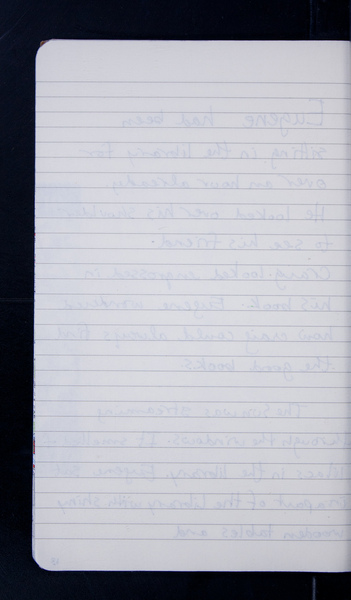 Eugene had been
sitting in the library for
over an hour already
He looked over his shoulder
to see his friend.
Craig looked engrossed in
his book. Eugene wondered
how craig could always find
the good books

The sun was streaming
through the windows. It
in the library. Eugene
part of the library with shiny
wooden tables and